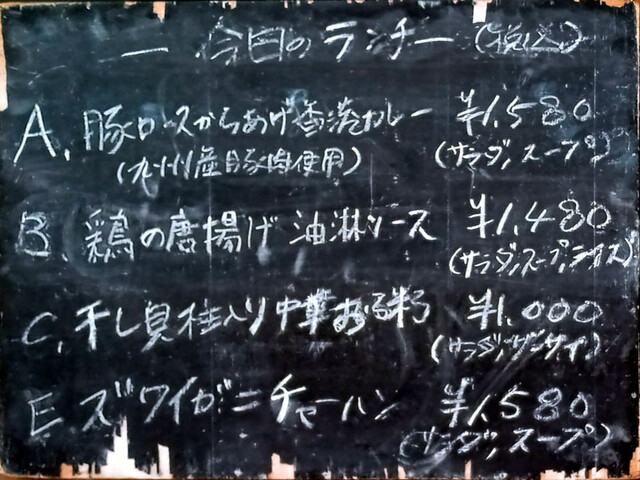 ー 今日のランチー (税込)
A. 豚ロースからあげ香港カレー ¥1,580
(九州産豚肉使用) (サラダ,スープ)
B. 鶏の唐揚げ 油淋ソース ¥1,480
(サラダ,スープ,ライス)
C. 干し貝柱入り中華おかゆ ¥1.000
(サラダ,ザーサイ)
E. ズワイガニチャーハン ¥1,580
(サラダ,スープ)